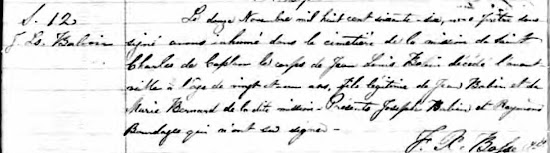 S. 12
J. Ls. Babin
Le douze Novembre mil huit cent soixante-six, nous prêtre sous
signé avons inhumé dans le cimetière de la mission de Saint
Charles de Caplan le corps de Jean Louis Babin décédé l'avant
veille à l'âge de vingt et un ans, fils légitime de Jean Babin et de
Marie Bernard de la dite mission - Présents Joseph Babin et Raymond
Bourdages qui n'ont su signer -
F. X. Bossé